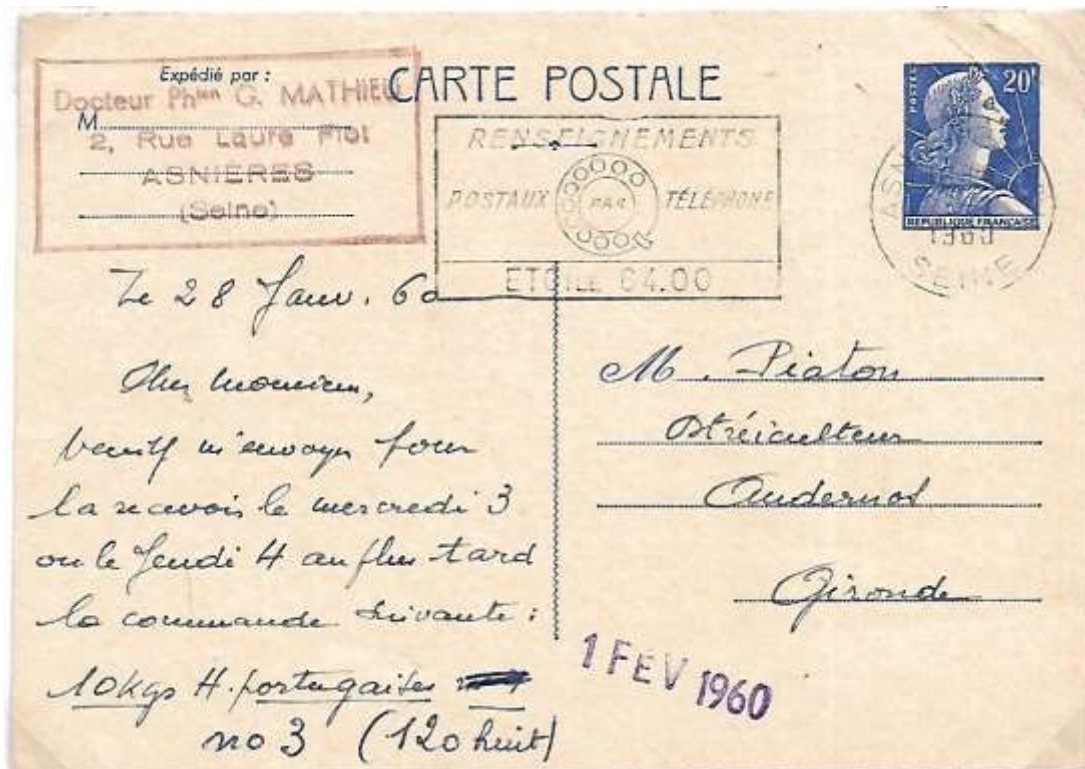 Expédié par :
Docteur Phien G. MATHIEU
M
2, Rue Laure Fiot
ASNIERES
(Seine)
CARTE POSTALE
RENSEIGNEMENTS
POSTAUX PAR TÉLÉPHONE
ETOILE 64.00
POSTES
20F
REPUBLIQUE FRANÇAISE
ASN
1960
SEINE
Le 28 Janv. 60
Cher monsieur,
veuillez m'envoyer pour
la recevoir le mercredi 3
ou le Jeudi 4 au plus tard
la commande suivante :
10kgs H. portugaises
no 3 (120 huit)
M. Piaton
Ostréiculteur
Andernos
Gironde
1 FEV 1960